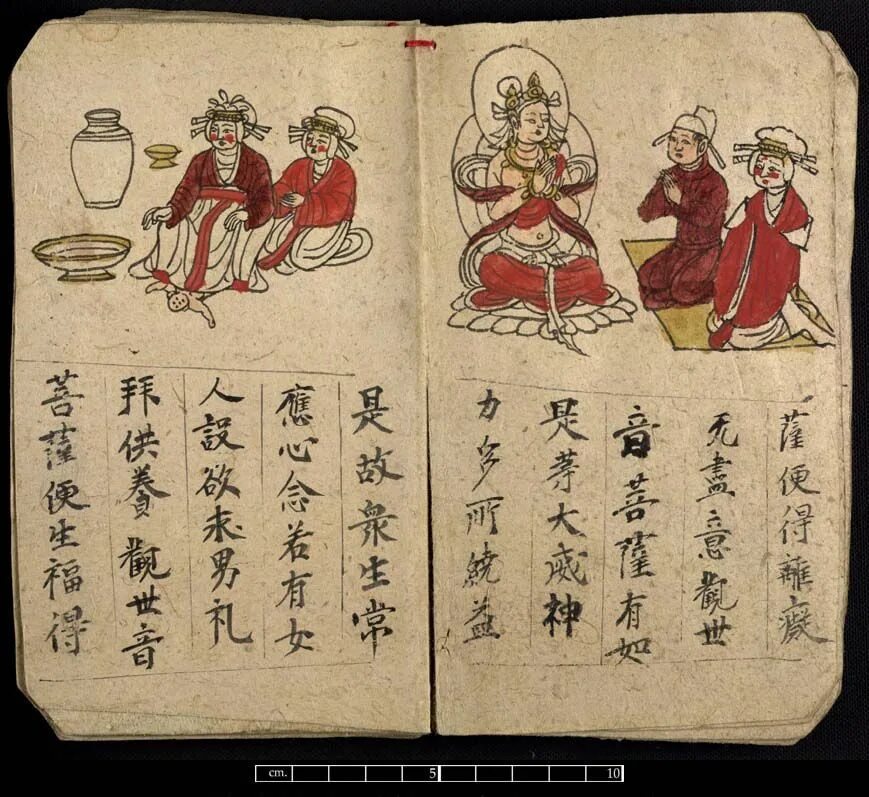 薩便得離癡
无盡意觀世
音菩薩有如
是等大威神
力多所饒益
是故衆生常
應心念若有女
人設欲求男礼
拜供養觀世音
菩薩便生福得
cm. 5 10